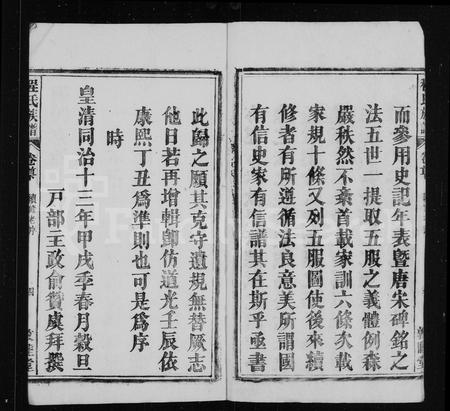 而參用史記年表暨唐宋碑銘之
法五世一提取五服之義體例森
嚴秩然不紊首載家訓六條次載
家規十條又列五服圖使後來續
修者有所遵循法良意美所謂國
有信史家有信譜其在斯乎亟書
此歸之願其克守遺規無替厥志
他日若再增輯卽仿道光壬辰依
康熙丁丑爲準則也可是爲序
時
皇清同治十三年甲戌季春月穀旦
戸部主政俞贊虞拜撰
程氏族譜
卷首
四